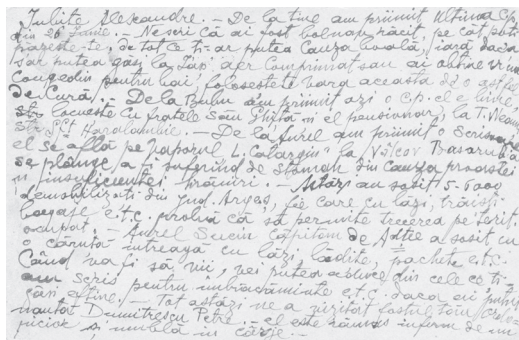 Iubite Alexandre. – De la tine am primit ultima C.p.
din 26 Iunie. – Ne scri că ai fost bolnav, răcit, pe cât poti
păzește-te, de tot ce ți-ar putea cauza boală, iară dacă
s-ar putea găsi la Iași aer comprimat sau ai obține vr'un
concediu pentru băi, folosește vara aceasta
de cură. – De la Bubu am primit azi o C.p. el e bine,
locuește cu fratele său Ghiță și el pensionar, la T. Neamț
Str. Sft. Haralambie. – De la Aurel am primit o scrisoare
el se află pe vaporul L. Catargiu la Vâlcov Basarabia
se plânge a fi suferind de stomah din cauza proastei
și insuficientei hrăniri. – Astăzi au sosit 5-6000
demobilizați din jud. Argeș, fie care cu lăzi, trăiști
bagaje e.t.c. probă că să permite trecerea pe terit.
ocupat. – Aurel Suciu căpitan de Adtie a sosit cu
o căruță întreagă cu lăzi, lădițe, pachete e.t.c.
Când va fi să vii, vei putea aduce din cele ce ți-
am scris pentru îmbrăcăminte e.t.c. dacă ai putea
găsi eftine. – Tot astăzi ne a vizitat fostul tău
nautor Dumitrescu Petre. – el este rămas infirm de un
picior și umblă în cârje. –